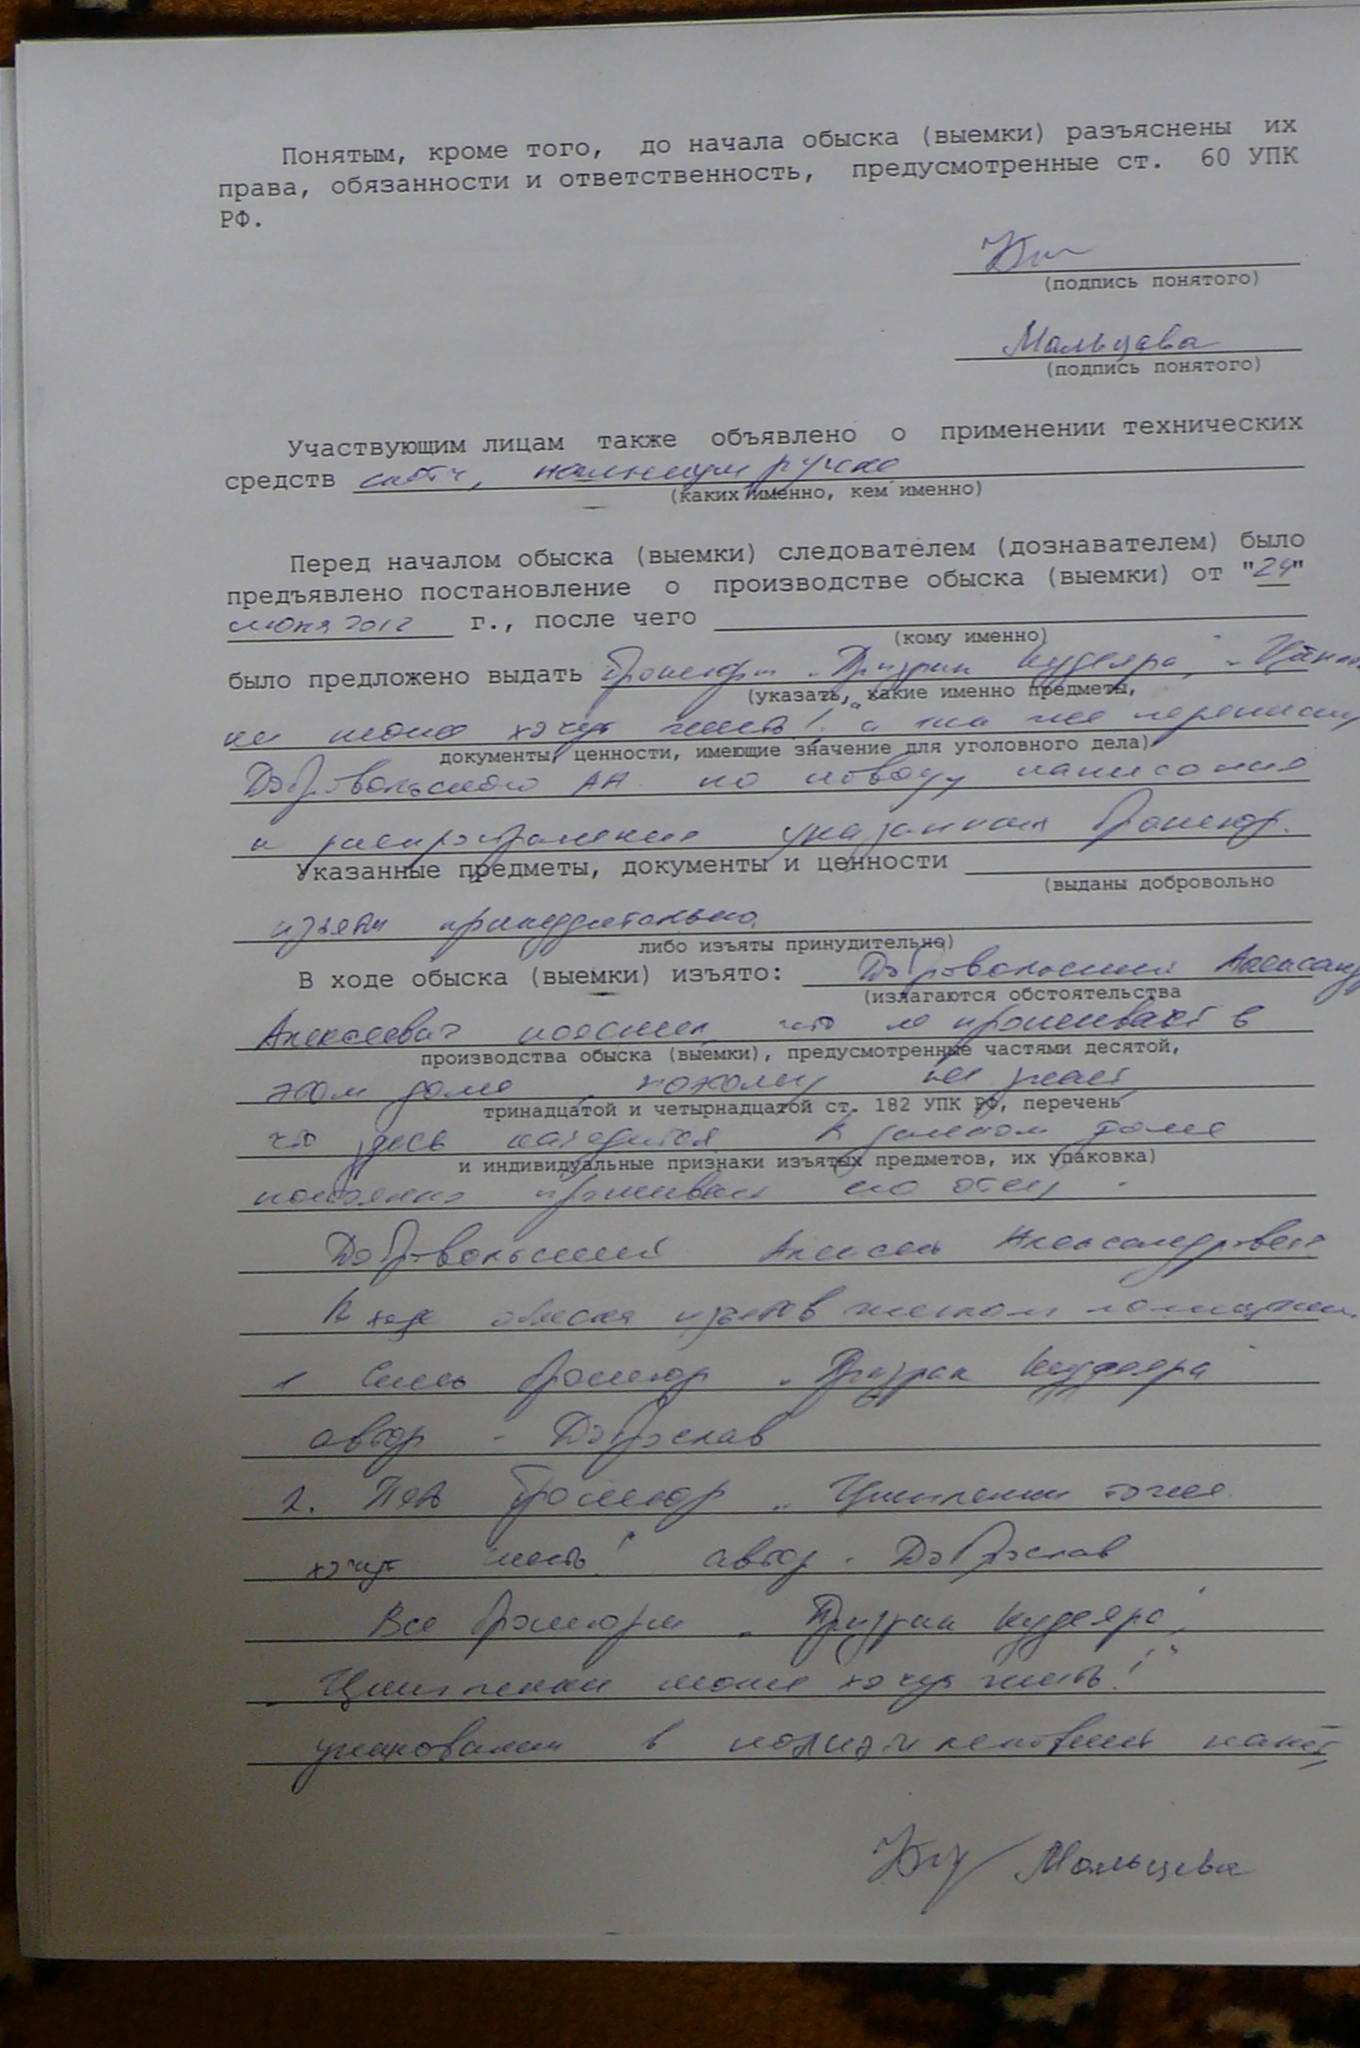 Понятым, кроме того, до начала обыска (выемки) разъяснены их
права, обязанности и ответственность, предусмотренные ст. 60 УПК
РФ.
(подпись понятого)
Мальцева
(подпись понятого)
Участвующим лицам также объявлено о применении технических
средств скотч, ручка
(каких именно, кем именно)
Перед началом обыска (выемки) следователем (дознавателем) было
предъявлено постановление о производстве обыска (выемки) от "24"
июня 2012 г., после чего
(кому именно)
было предложено выдать брошюры "Призрак Кудеяра",
(указать, какие именно предметы,
хотят жить!" а так же переписку
документы, ценности, имеющие значение для уголовного дела)
Добровольского АА. по поводу написания
и распространения указанных брошюр.
Указанные предметы, документы и ценности
(выданы добровольно
изъяты принудительно.
либо изъяты принудительно)
В ходе обыска (выемки) изъято: Добровольский Александр
(излагаются обстоятельства
Алексеевич пояснил, что не проживает в
производства обыска (выемки), предусмотренные частями десятой,
этом доме, поэтому не знает
тринадцатой и четырнадцатой ст. 182 УПК РФ, перечень
что здесь находится. В данном доме
и индивидуальные признаки изъятых предметов, их упаковка)
постоянно проживает его отец -
Добровольский Алексей Александрович
В ходе обыска изъято в жилом помещении
1 Семь брошюр "Призрак Кудеяра"
автор - Доброслав
2. Пять брошюр "Цыплята тоже
хотят жить!" автор - Доброслав
Все брошюры "Призрак Кудеяра",
тоже хотят жить!"
упакованы в полиэтиленовый пакет
Мальцева